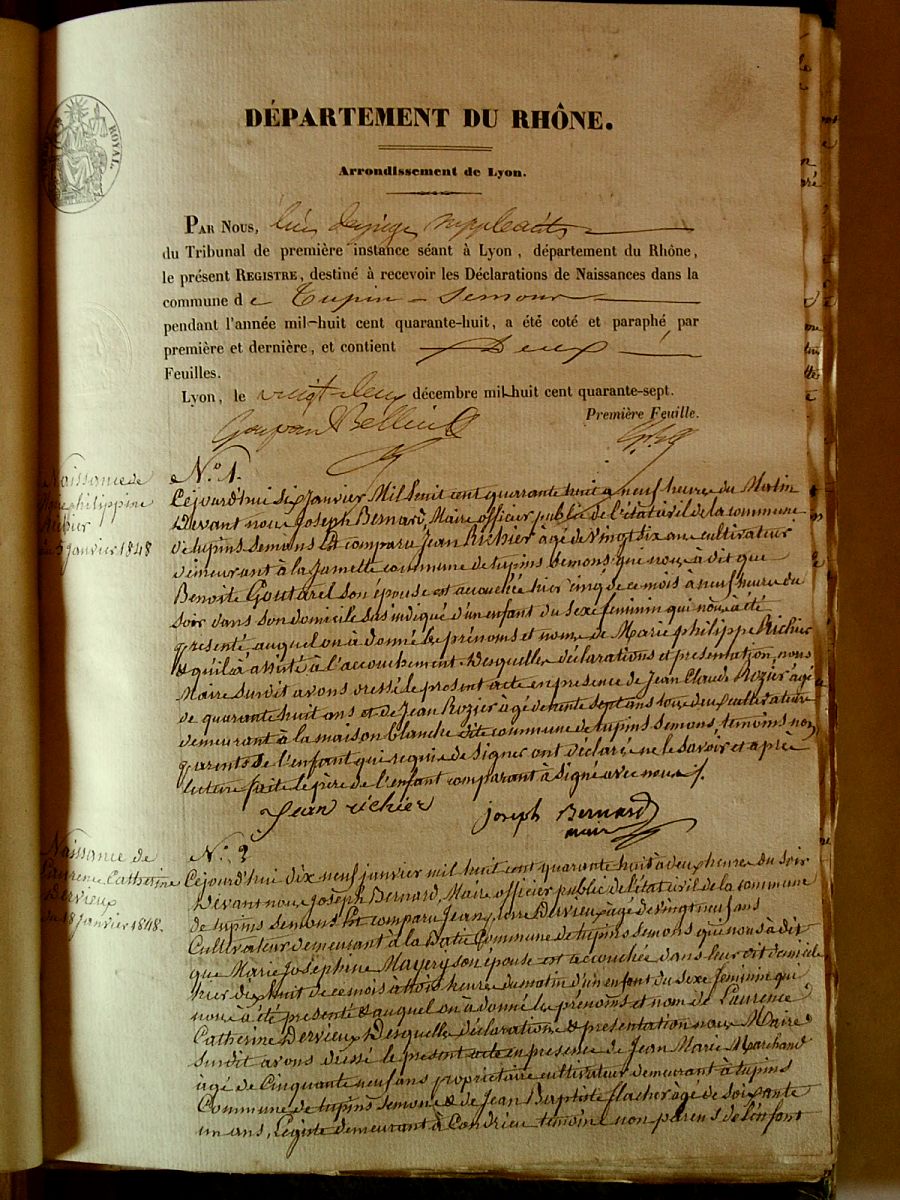 ROYAL.
DÉPARTEMENT DU RHÔNE.
Arrondissement de Lyon.
PAR NOUS, suppléant
du Tribunal de première instance séant à Lyon, département du Rhône,
le présent REGISTRE, destiné à recevoir les Déclarations de Naissances dans la
commune de Tupin-Semons
pendant l'année mil-huit cent quarante-huit, a été coté et paraphé, par
première et dernière, et contient Deux
Feuilles.
Lyon, le vingt deux décembre mil-huit cent quarante-sept.
Première Feuille.
Naissance de
philippine
5 janvier 1848
N.° 1.
Cejourd'hui six janvier Mil huit cent quarante huit a neuf heure du Matin
Devant nous Joseph Bernard, Maire officier public de l'état civil de la commune
de tupins Semons Est comparu Jean Richier agé de vingt six ans cultivateur
demeurant à la commune de tupins Semons qui nous à dit que
Benoite Goutarel son épouse est accouchée hier cinq de ce mois à neuf heure du
soir dans son domicile sus indiqué d'un enfant du sexe feminin qui nous à été
presenté auquel on à donné les prénoms et nom de Marie philippe Richier
& qu'il à assisté à l'accouchement desquelles déclarations et presentation, nous
Maire susdit avons dressé le present acte en presence de Jean Claude Rozier âgé
de quarante huit ans et de Jean Rozier âgé de trente sept ans tous deux cultivateurs
demeurant à la maison blanche dite commune de tupins semons, temoins non
parents de l'enfant qui requis de signer ont déclaré ne le savoir et après
lecture faite le père de l'enfant comparant à signé avec nous ./.
Jean richier
joseph Bernard
maire
Naissance de
Laurence Catherine
Dervieux
du 18 Janvier 1848.
N.° 2
Cejourd'hui dix neuf janvier mil huit cent quarante huit à deux heures du soir
Devant nous Joseph Bernard, Maire officier public de l'état civil de la commune
de tupins semons Est comparu Jean pierre Dervieux agé de vingt neuf ans
Cultivateur demeurant à la Batie Commune de tupins semons qui nous à dit
que Marie Joséphine Mayery son épouse est accouchée dans leur dit domicile
hier dix huit de ce mois à trois heures du matin d'un enfant du sexe feminin qui
nous à été presenté & auquel on à donné les prénoms et nom de Laurence
Catherine Dervieux Desquelles déclarations & presentation nous Maire
Susdit avons dressé le present acte en presence de Jean Marie Marchand
agé de Cinquante neuf ans propriétaire cultivateur demeurant à tupins
Commune de tupins semons & de Jean Baptiste flachor âgé de soixante
un ans, Légiste demeurant à Condrieu temoins non parens de l'enfant